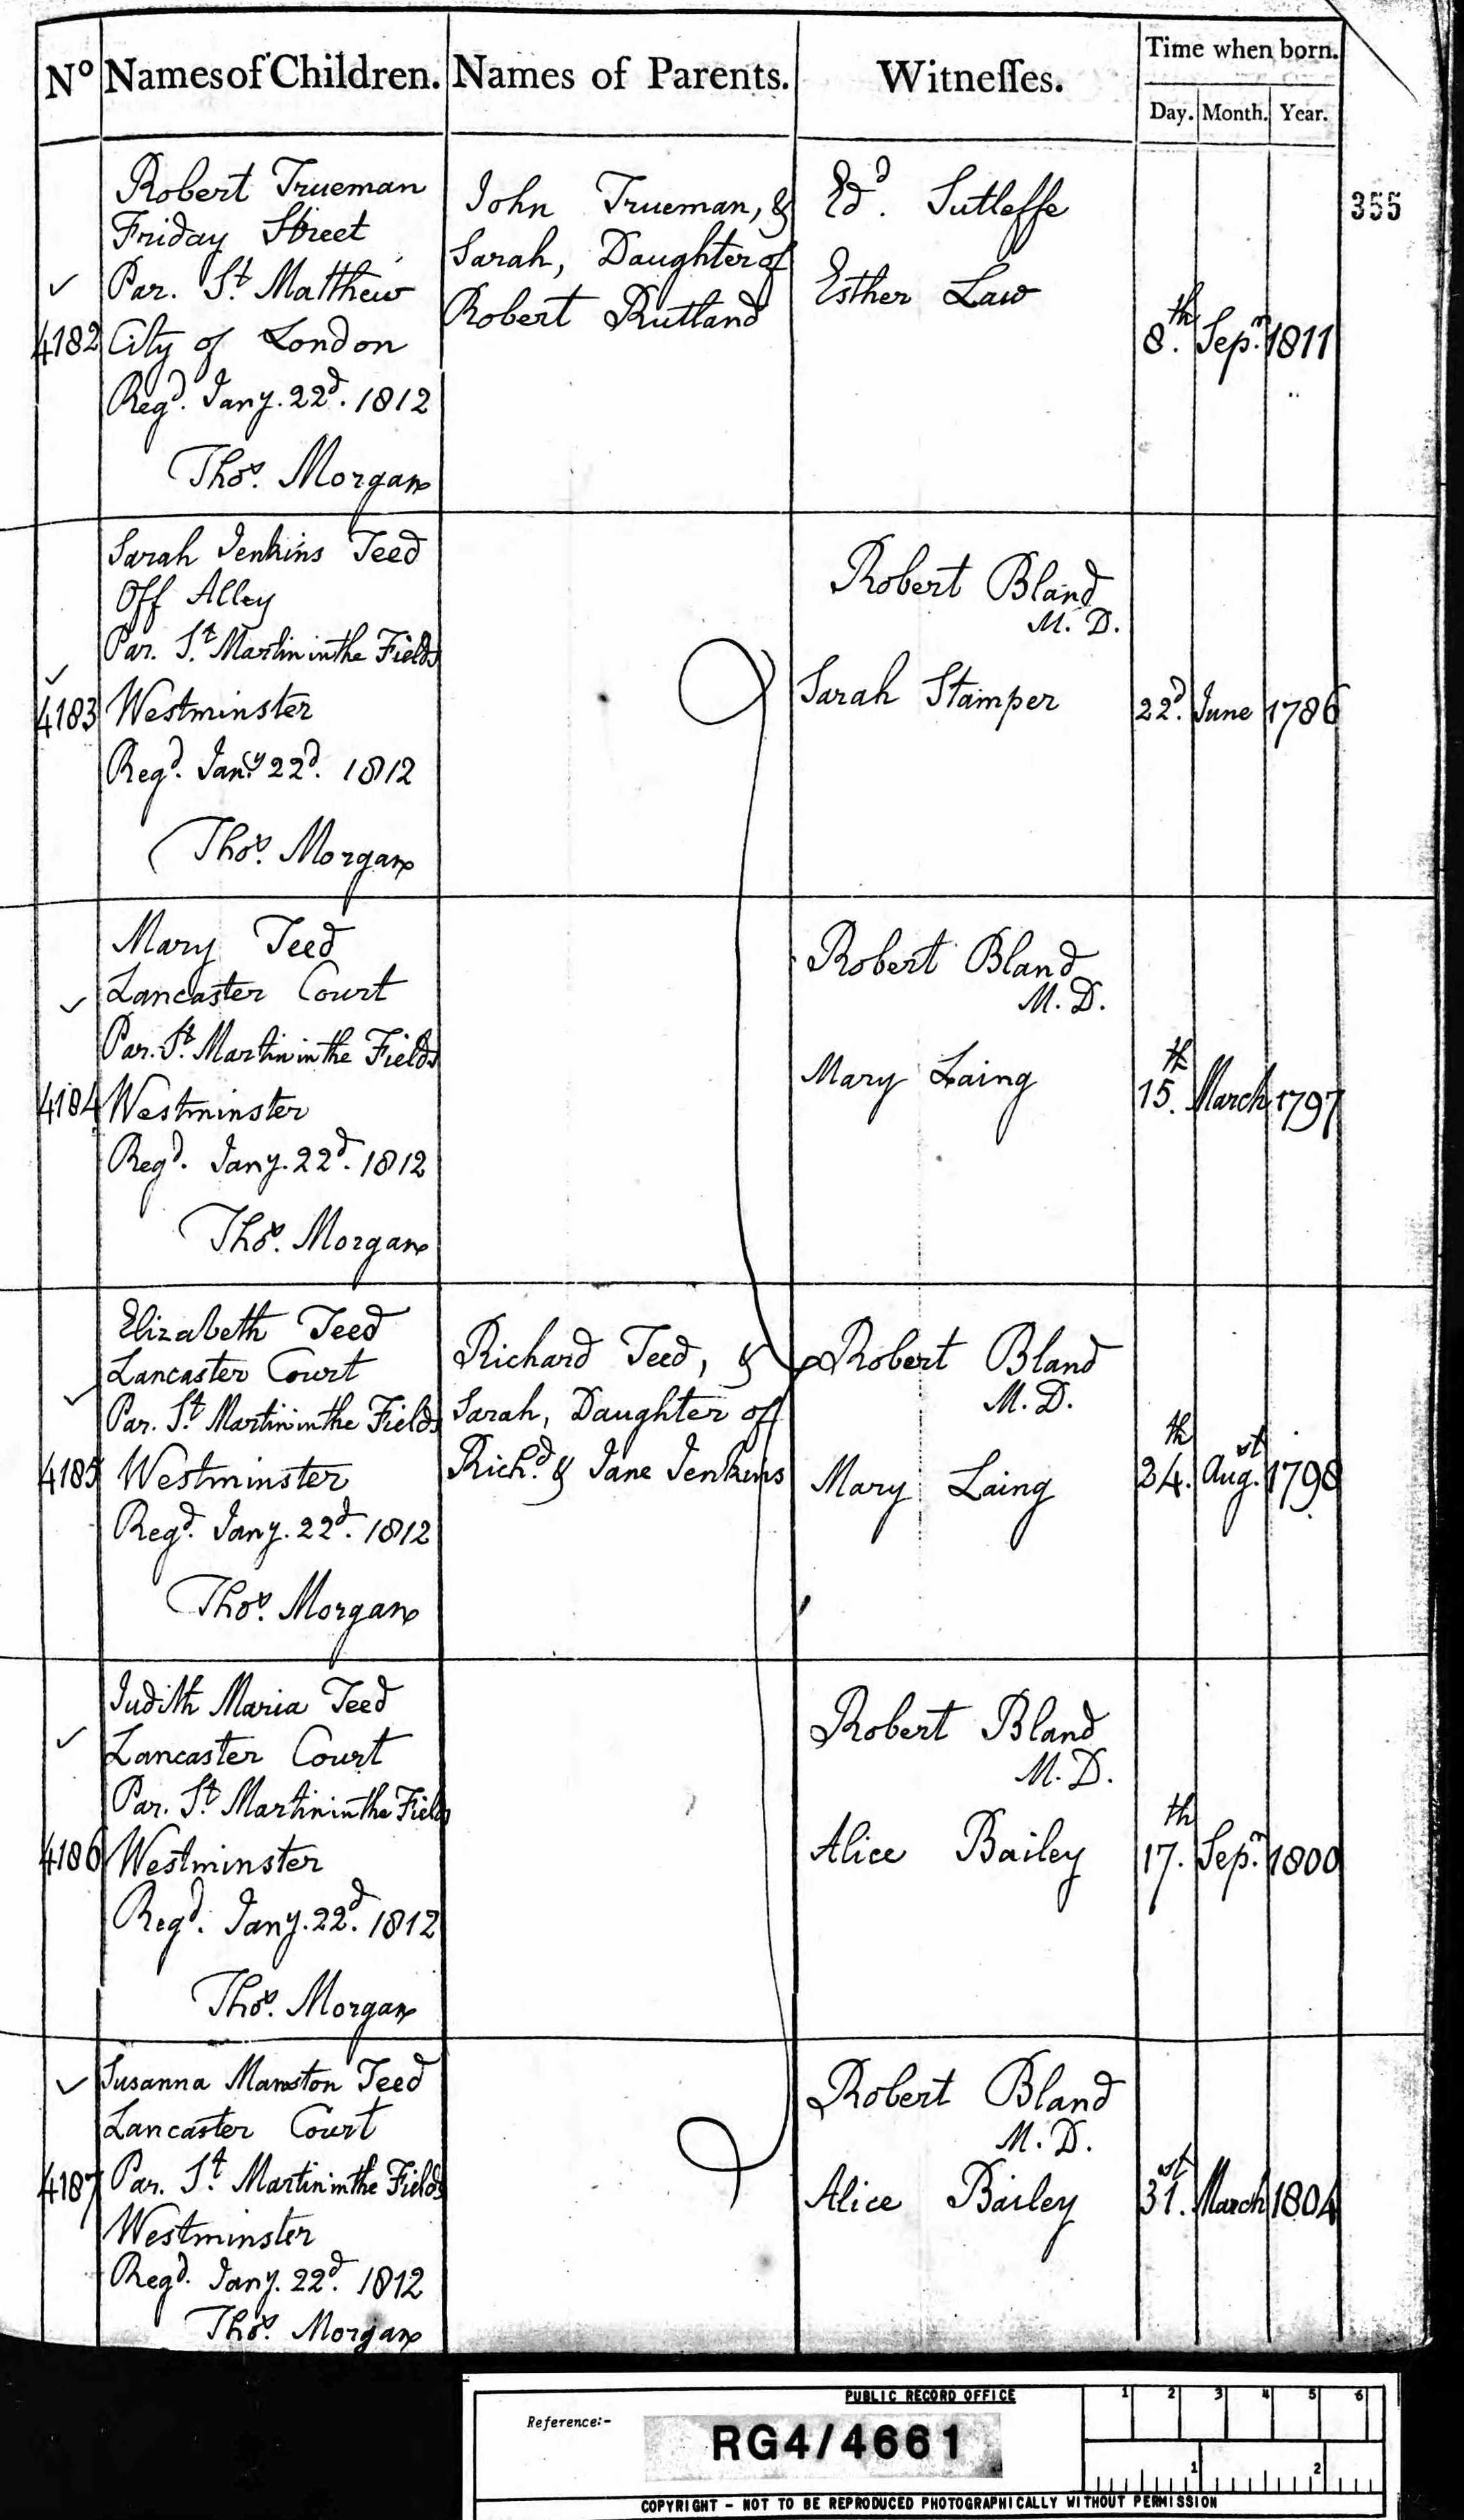 Nº Names of Children. Names of Parents. Witneſſes. Time when born.
Day. Month. Year.
355
Robert Trueman
Friday Street
Par. St. Matthew
4182 City of London
Regd. Jany. 22d. 1812
Thos. Morgan
John Trueman, &
Sarah, Daughter of
Robert Rutland
Ed. Sutleffe
Esther Law
8.th Sepr. 1811
Sarah Jenkins Teed
Off Alley
Par. St. Martin in the Fields
4183 Westminster
Regd. Jany. 22d. 1812
Thos. Morgan
Robert Bland
M. D.
Sarah Stamper
22d. June 1786
Mary Teed
Lancaster Court
Par. St. Martin in the Fields
4184 Westminster
Regd. Jany. 22d. 1812
Thos. Morgan
Robert Bland
M. D.
Mary Laing
15.th March 1797
Elizabeth Teed
Lancaster Court
Par. St. Martin in the Fields
4185 Westminster
Regd. Jany. 22d. 1812
Thos. Morgan
Richard Teed, &
Sarah, Daughter of
Richd. & Jane Jenkins
Robert Bland
M. D.
Mary Laing
24.th Augst. 1798
Judith Maria Teed
Lancaster Court
Par. St. Martin in the Fields
4186 Westminster
Regd. Jany. 22d. 1812
Thos. Morgan
Robert Bland
M. D.
Alice Bailey
17.th Sepr. 1800
Susanna Manston Teed
Lancaster Court
4187 Par. St. Martin in the Fields
Westminster
Regd. Jany. 22d. 1812
Thos. Morgan
Robert Bland
M. D.
Alice Bailey
31.st March 1804
PUBLIC RECORD OFFICE
1 2 3 4 5 6
Reference:-
RG4/4661
1 2
COPYRIGHT - NOT TO BE REPRODUCED PHOTOGRAPHICALLY WITHOUT PERMISSION